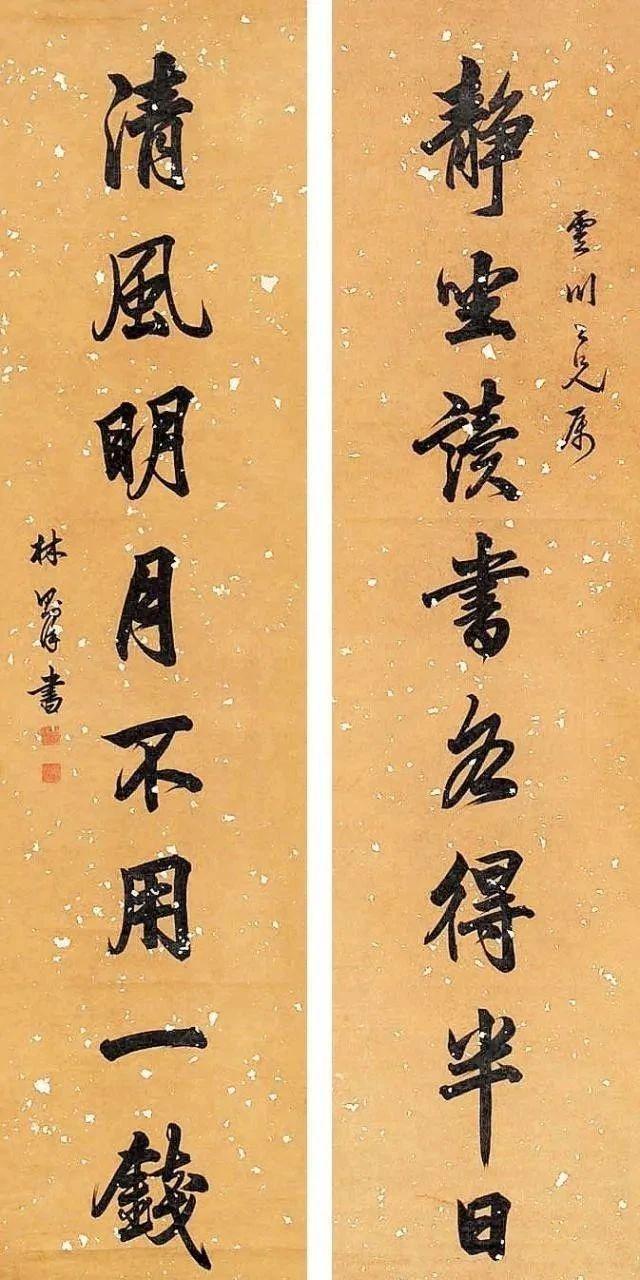 静坐讀書各得半日
雲川兄属
清風明月不用一錢
林則徐書